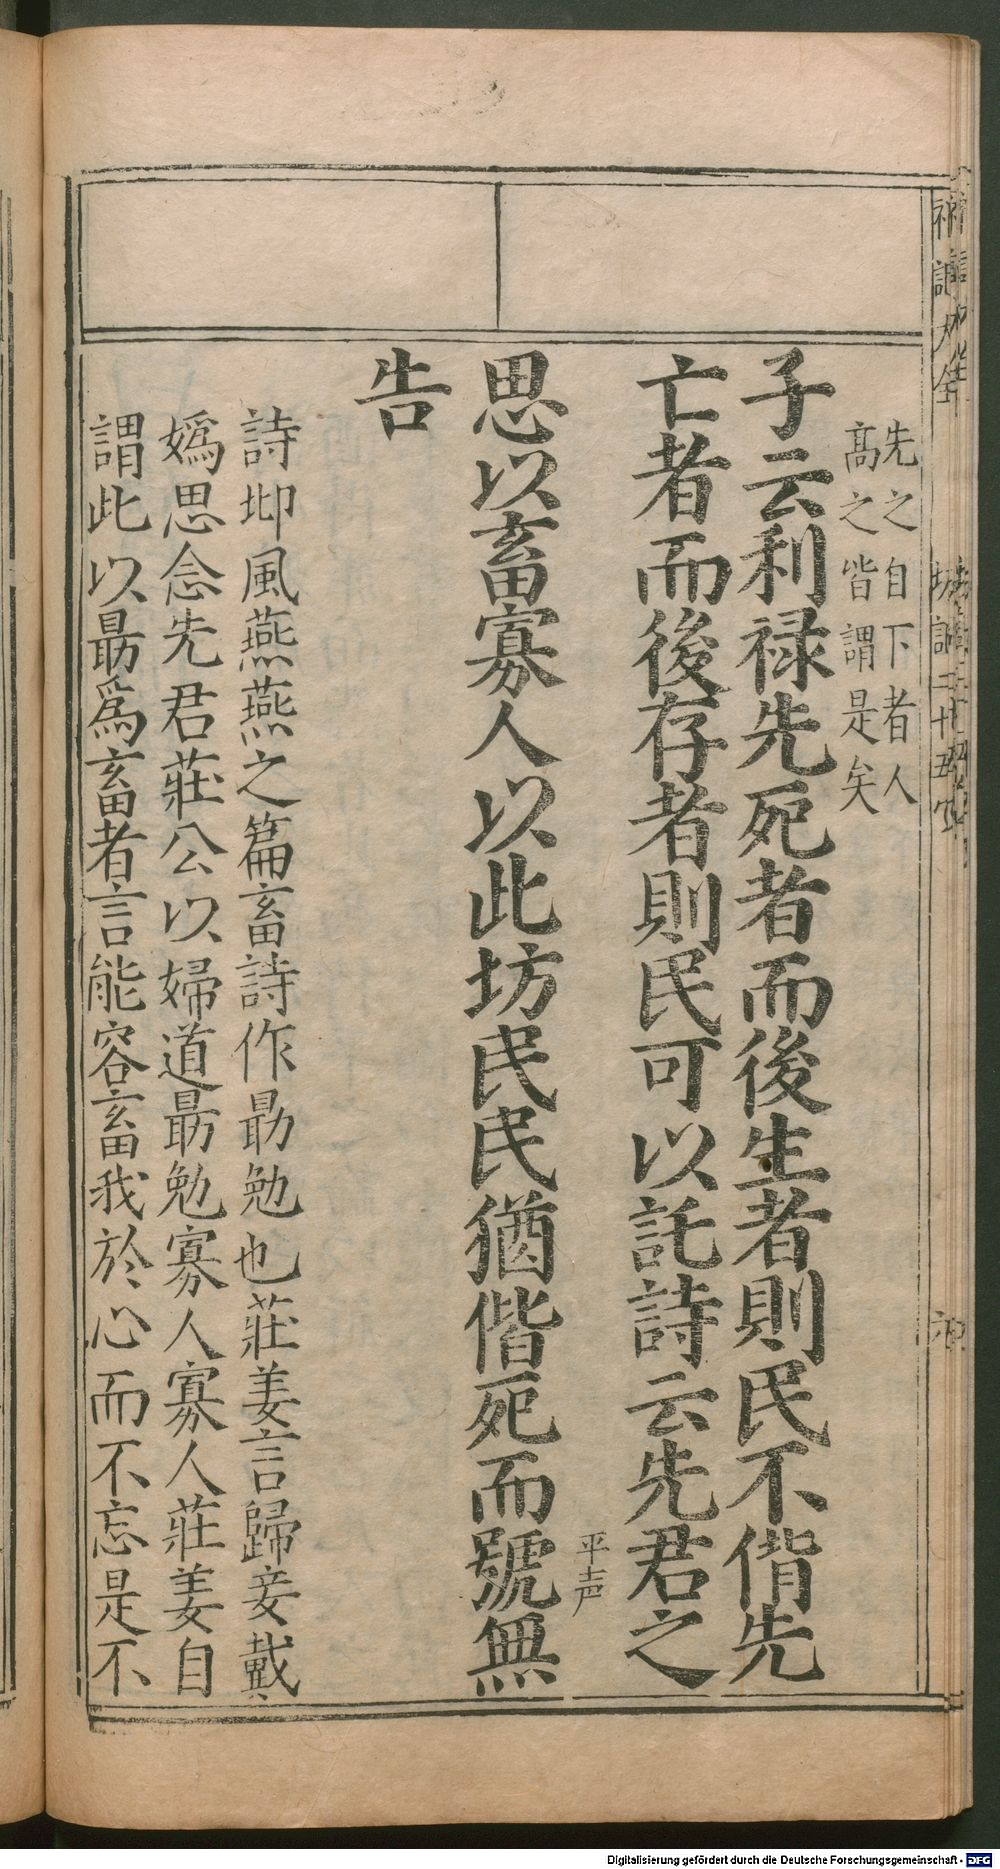 先之自下者人
髙之皆謂是矣
子云利禄先死者而後生者則民不偝先
亡者而後存者則民可以託詩云先君之
平声
思以畜寡人以此坊民民猶偝死而號無
告
詩邶風燕燕之篇畜詩作勗勉也莊姜言歸妾戴
嬀思念先君莊公以婦道勗勉寡人寡人莊姜自
謂此以勗爲畜者言能容畜我於心而不忘是不
Digitalisierung gefördert durch die Deutsche Forschungsgemeinschaft - DFG